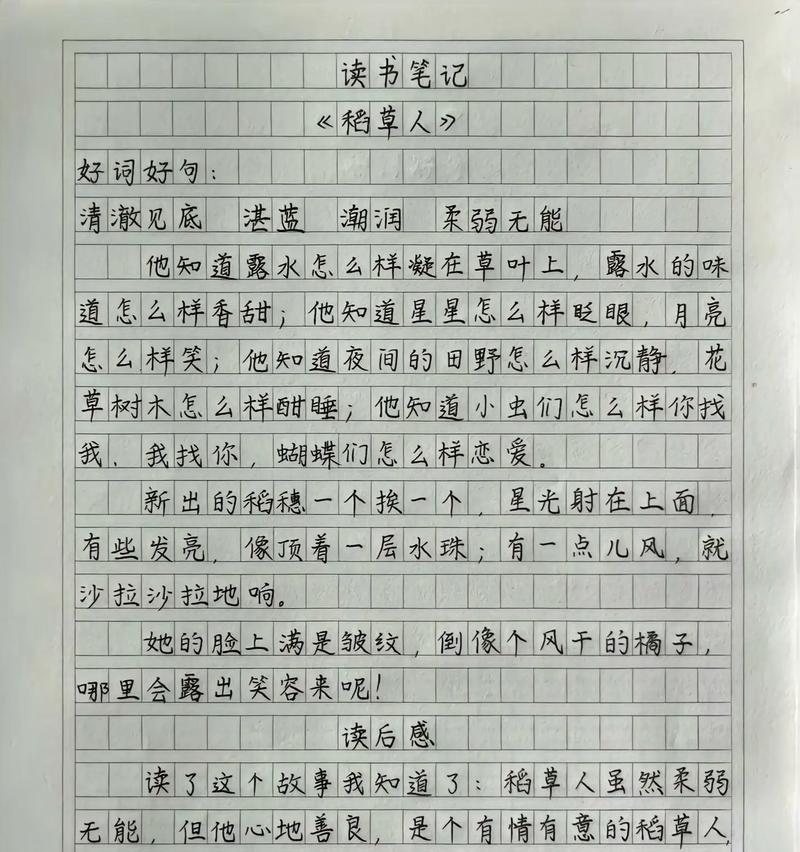 读书笔记
《稻草人》
好词好句：
清澈见底 湛蓝 潮润 柔弱无能
他知道露水怎么样凝在草叶上，露水的味
道怎么样香甜；他知道星星怎么样眨眼，月亮
怎么样笑；他知道夜间的田野怎么样沉静，花
草树木怎么样酣睡；他知道小虫们怎么样你找
我、我找你，蝴蝶们怎么样恋爱。
新出的稻穗一个挨一个，星光射在上面，
有些发亮，像顶着一层水珠；有一点儿风，就
沙拉沙拉地响。
她的脸上满是皱纹，倒像个风干的橘子，
哪里会露出笑容来呢！
读后感
读了这个故事我知道了：稻草人虽然柔弱
无能，但他心地善良，是个有情有意的稻草人，